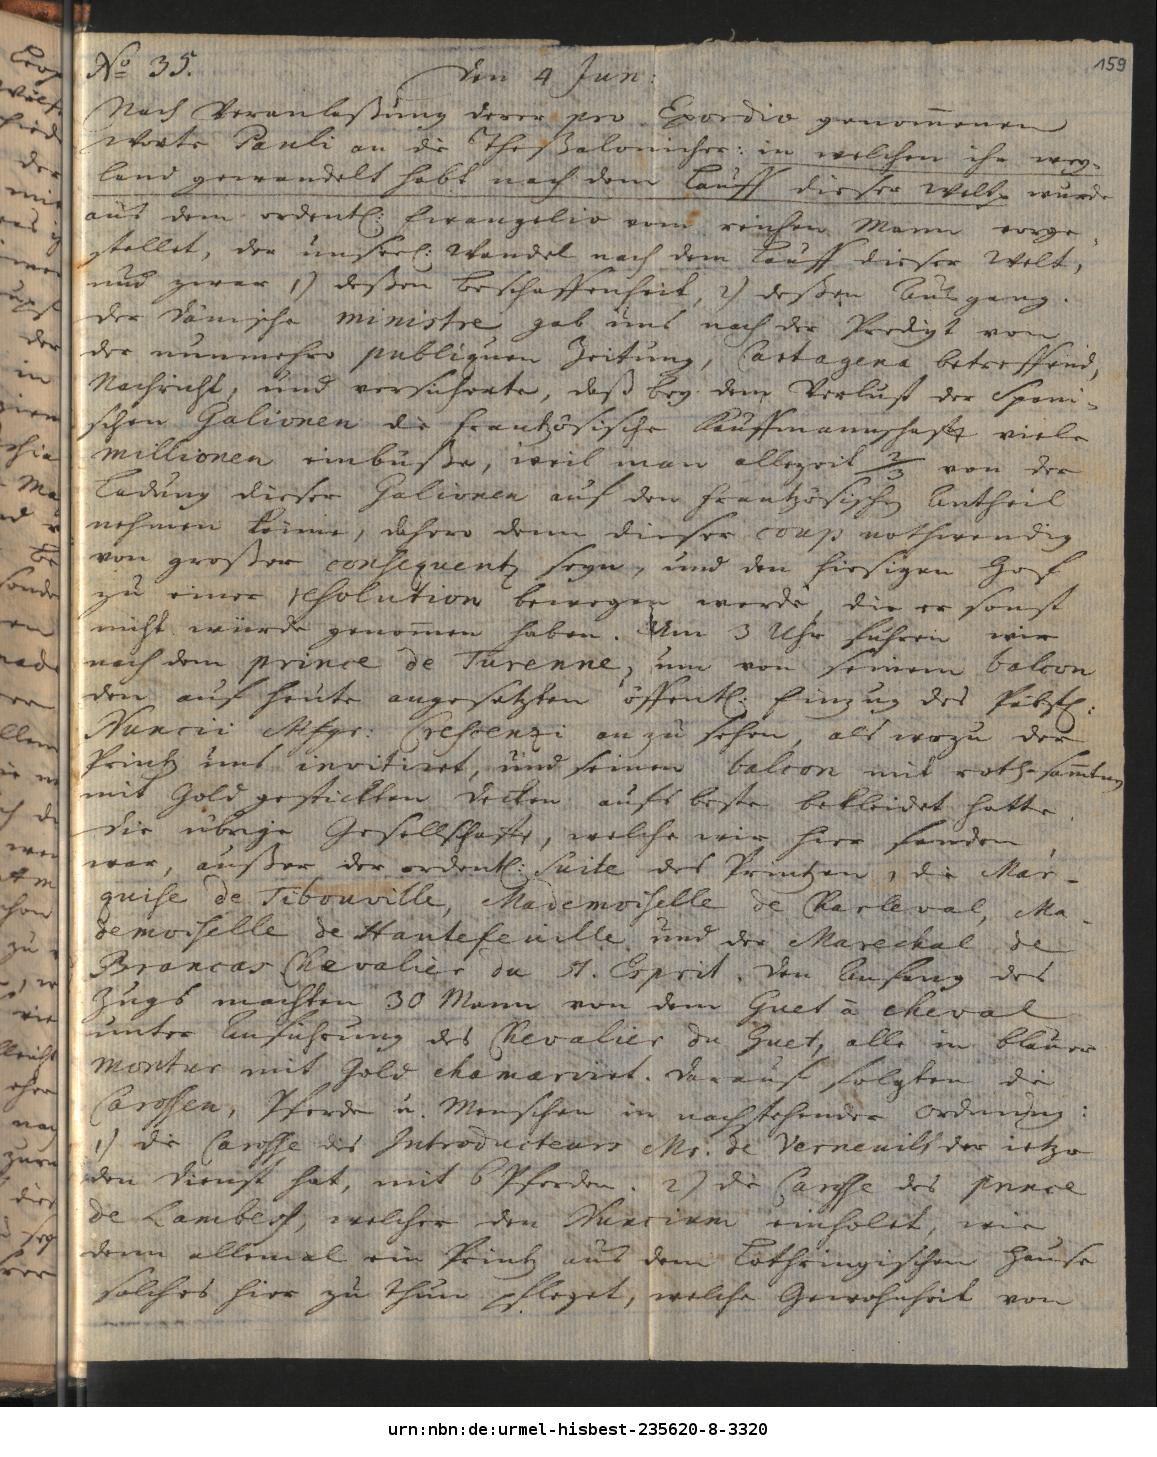 159
No 35.
den 4 Jun:
Nach Veranlaßung derer pro Exordio genommenen
Worte Pauli an die Theßalonicher: in welchen ihr wey-
land gewandelt habt nach dem Lauff dieser Welt wurde
aus dem ordentl: Evangelio vom reichen Mann vorge-
stellet, der unseel: Wandel nach dem Lauff dieser Welt,
und zwar 1) deßen Beschaffenheit, 2) deßen Ausgang.
Der Dänische ministre gab uns nach der Predigt von
der nunmehro publiquen Zeitung, Cartagena betreffend,
Nachricht, und versicherte, daß bey dem Verlust der Spani-
schen Galionen die Frantzösische Kauffmannschafft viele
millionen einbüße, weil man allezeit 2/3 von der
Ladung dieser Galionen auf den Frantzösischen Antheil
nehmen könne, dahero denn dieser coup nothwendig
von großer consequentz seyn, und den hiesigen Hof
zu einer resolution bewegen werde, die er sonst
nicht würde genommen haben. Um 3 Uhr fuhren wir
nach dem prince de Turenne, um von seinem balcon
den auf heute angesetzten öffentl: Einzug des Päbstl:
Nuncii Msgr: Crescenzi anzusehen, als wozu der
Printz uns invitiret, und seinen balcon mit roth-sammtnen
mit Gold gestickten Decken aufs beste bekleidet hatte.
Die übrige Gesellschafft, welche wir hier fanden,
war, außer der ordentl: Suite des Printzen, die Mar-
quise de Tibouville, Mademoiselle de Charleval, Ma-
demoiselle de Hautefeuille und der Marechal de
Brancas Chevalier du St. Esprit. Den Anfang des
Zugs machten 30 Mann von dem Guet à cheval
unter Anführung des Chevalier du Guet, alle in blauer
montur mit Gold chamarrirt. Darauf folgten die
Carossen, Pferde u. Menschen in nachstehender Ordnung:
1) die Carosse des Introducteurs Mr. de Verneuil der ietzo
den Dienst hat, mit 6 Pferden. 2) die Carosse des prince
de Lambesc, welcher den Nuncium einholet, wie
denn allemal ein Printz aus dem Lothringischen Hause
solches hier zu thun pfleget, welche Gewohnheit von
urn:nbn:de:urmel-hisbest-235620-8-3320